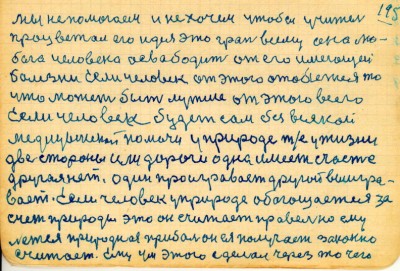 195
мы непомогаем и нехочем чтобы учител
процветал его идея это грап всему она лю-
бога человека асвабодит от его имеющей
болезни если человек от этого отобется то
что может быт лутше от этого всего
если человек будет сам без всякой
медицынской помочи у природе т/е у жизни
две стороны или дороги одна имеет счастье
другая нет. один проигравает другой выигра-
вает. Если человек у природе обогощается за
счет природы это он считает правелно ему
леется природная прибал он ея получает законно
считает. ему ум этого зделал через то чего